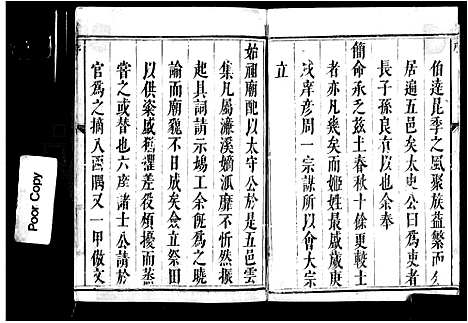 伯達昆季之風聚族益繁而分
居遍五邑矣太史公曰為吏者
長子孫良有以也奉
簡命承之茲土春秋十餘更較士
者亦凡幾矣而姬姓最盛歲庚
戌岸彥周一宗謀所以會大宗
立
始祖廟配以太守公於是五邑雲
集凡屬濂溪嫡派靡不忻然振
起具詞請示塲工余旣為之曉
諭而廟貌不日成矣僉立祭田
以供粢盛程懼差役煩擾而蒸
嘗之或替也六庠諸士公請於
官為之摘入酉隅又一甲倣文
Poor Copy